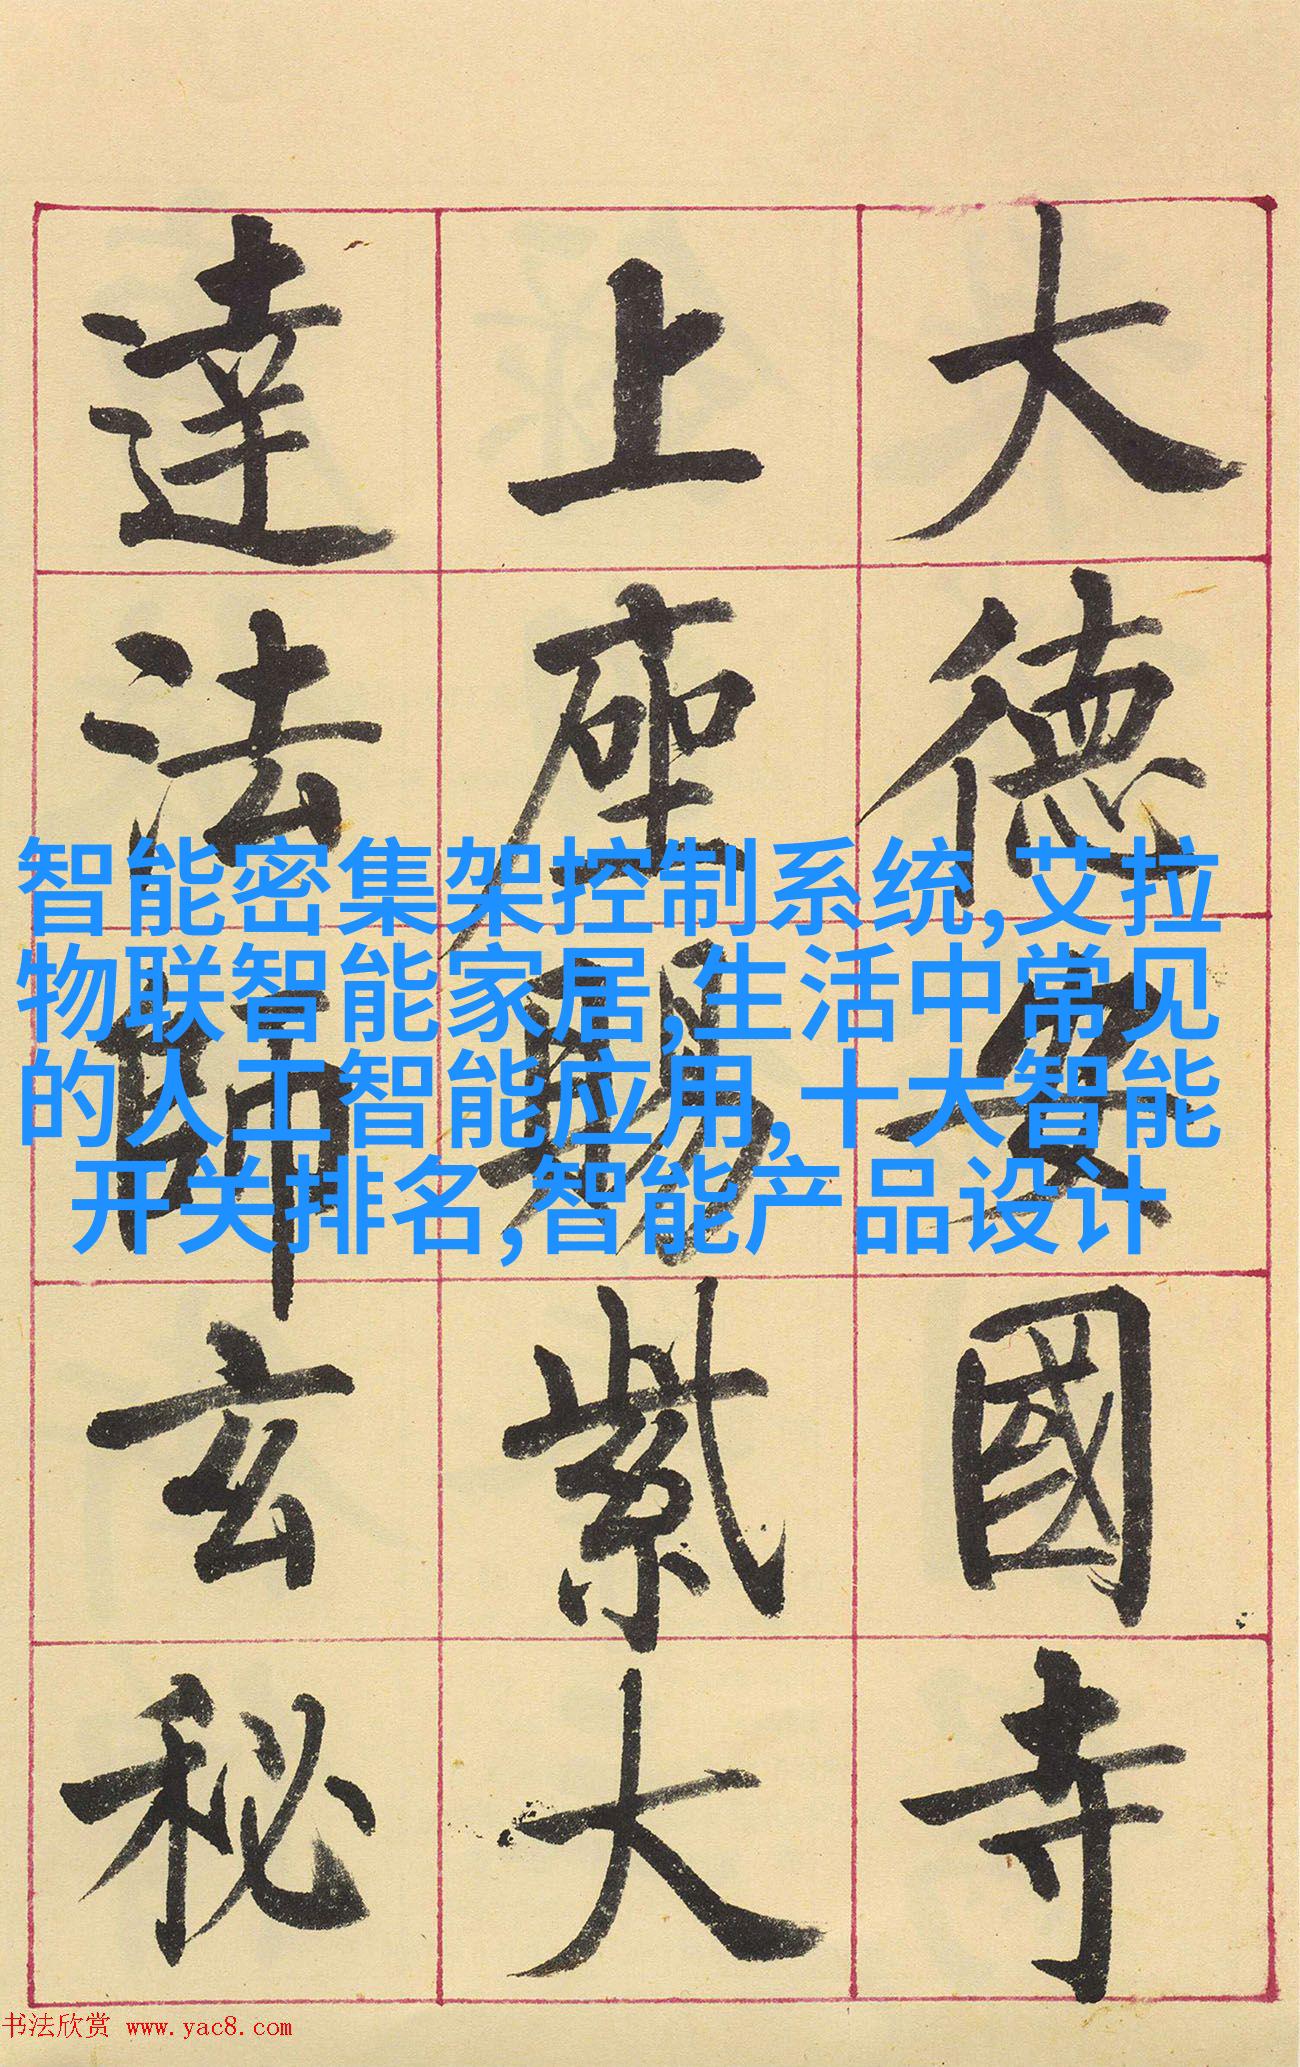 大德安國寺
上座賜紫大
達法師玄秘
智能密集架控制系统,艾拉
物联智能家居,生活中常见
的人工智能应用,十大智能
开关排名,智能产品设计
书法欣赏 www.yac8.com